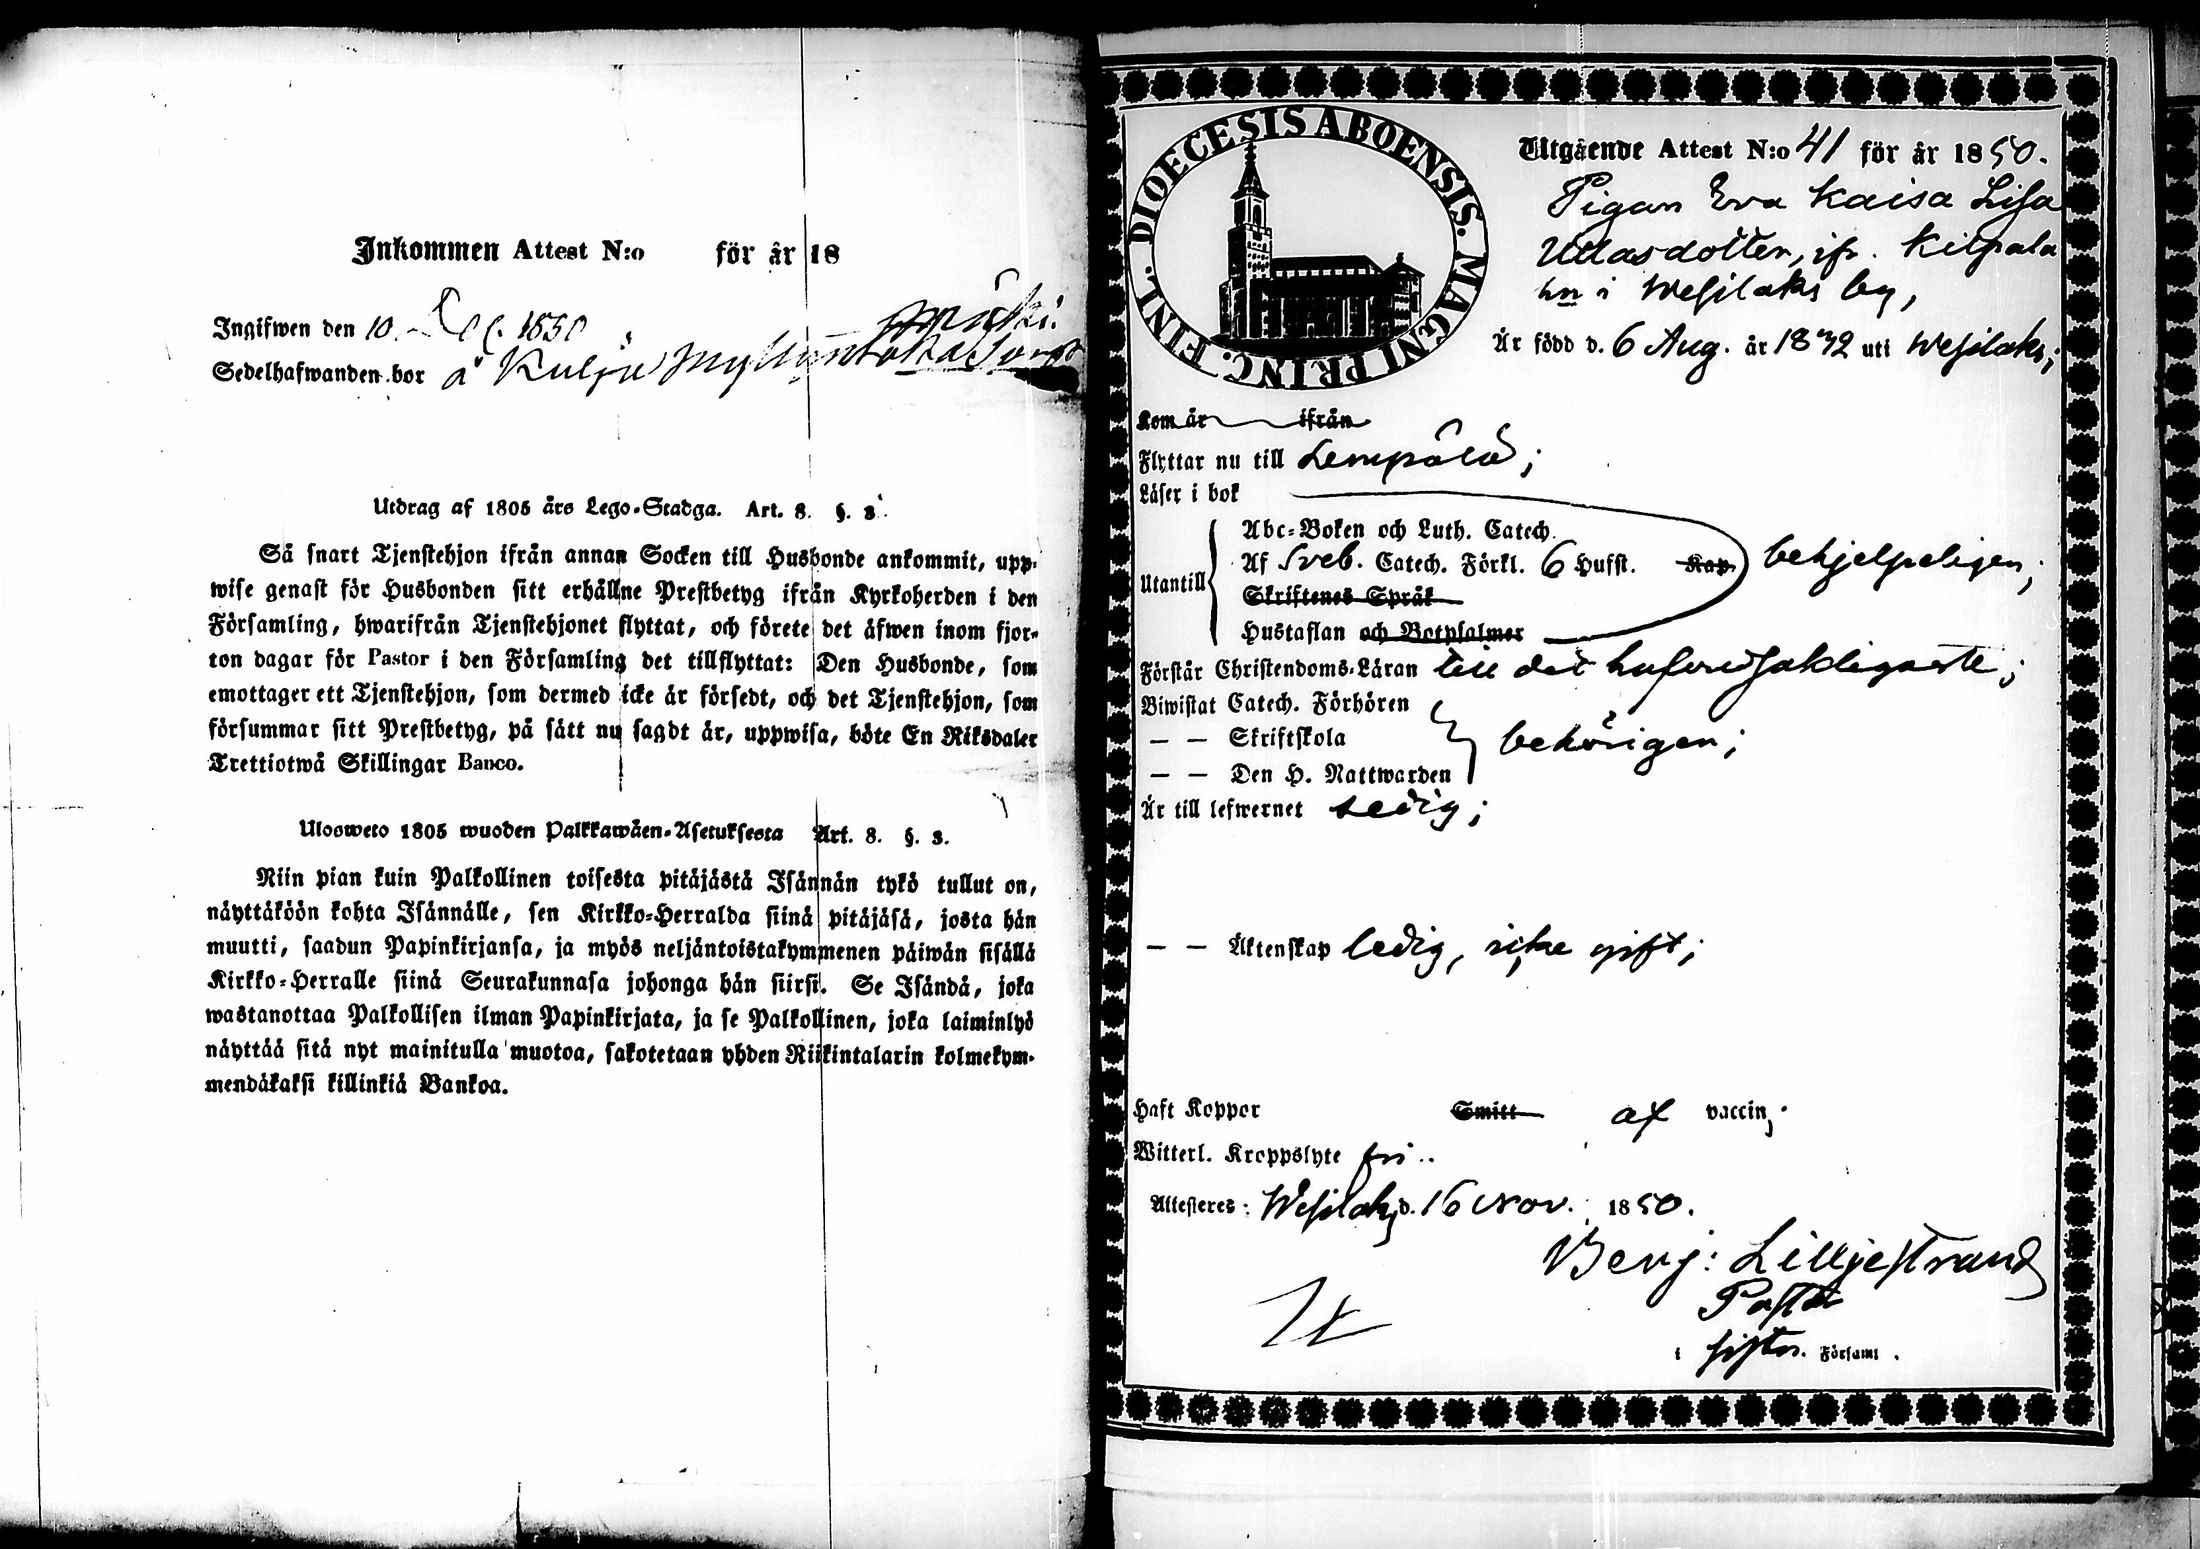 Inkommen Attest N:o för år 18
Ingifwen den 10 Dec. 1850
Sedelhafwanden bor å Kulju
Utdrag af 1805 års Lego-Stadga. Art. 8. §. 3.
Så snart Tjenstehjon ifrån annan Socken till Husbonde ankommit, upp-
wise genast för Husbonden sitt erhållne Prestbetyg ifrån Kyrkoherden i den
Församling, hwarifrån Tjenstehjonet flyttat, och förete det äfwen inom fjor-
ton dagar för Pastor i den Församling det tillflyttat: Den Husbonde, som
emottager ett Tjenstehjon, som dermed icke är försedt, och det Tjenstehjon, som
försummar sitt Prestbetyg, på sätt nu sagdt är, uppwisa, böte En Riksdaler
Trettiotwå Skillingar Banco.
Ulosweto 1805 wuoden Palkkawäen-Asetuksesta Art. 8. §. 3.
Niin pian kuin Palkollinen toisesta pitäjästä Isännän tykö tullut on,
näyttäköön kohta Isännälle, sen Kirkko-Herralda siinä pitäjäsä, josta hän
muutti, saadun Papinkirjansa, ja myös neljäntoistakymmenen päiwän sisällä
Kirkko-Herralle siinä Seurakunnasa johonga hän siirsi. Se Isändä, joka
wastanottaa Palkollisen ilman Papinkirjata, ja se Palkollinen, joka laiminlyö
näyttää sitä nyt mainitulla muotoa, sakotetaan yhden Riikintalarin kolmekym-
mendäkaksi killinkiä Bankoa.
DIOECESIS ABOENSIS. MAGNI PRINC. FINL.
Utgående Attest N:o 41 för år 1850.
Pigan Eva Kaisa Lisa
Ullasdotter, ifr. Kilpala
hn i Wesilaks by,
Är född d. 6 Aug. år 1832 uti Wesilaks;
Kom år ifrån
Flyttar nu till Lempälä;
Läser i bok
Utantill
Abc-Boken och Luth. Catech.
Af Sveb. Catech. Förkl. 6 Hufst. Kap. behjelpeligen;
Skriftenes Språk
Hustaflan och Botpsalmer
Förstår Christendoms-Läran till det hufvudsakligaste;
Biwistat Catech. Förhören
— — Skriftskola behörigen;
— — Den H. Nattwarden
Är till lefwernet sedig;
— — Äktenskap ledig, icke gift;
Haft Koppor Smitt af vaccin.
Witterl. Kroppslyte fri..
Attesteres: Wesilaks d. 16 Nov. 1850.
Benj: Lilljestrand
Pastor
i sistn. Församl.